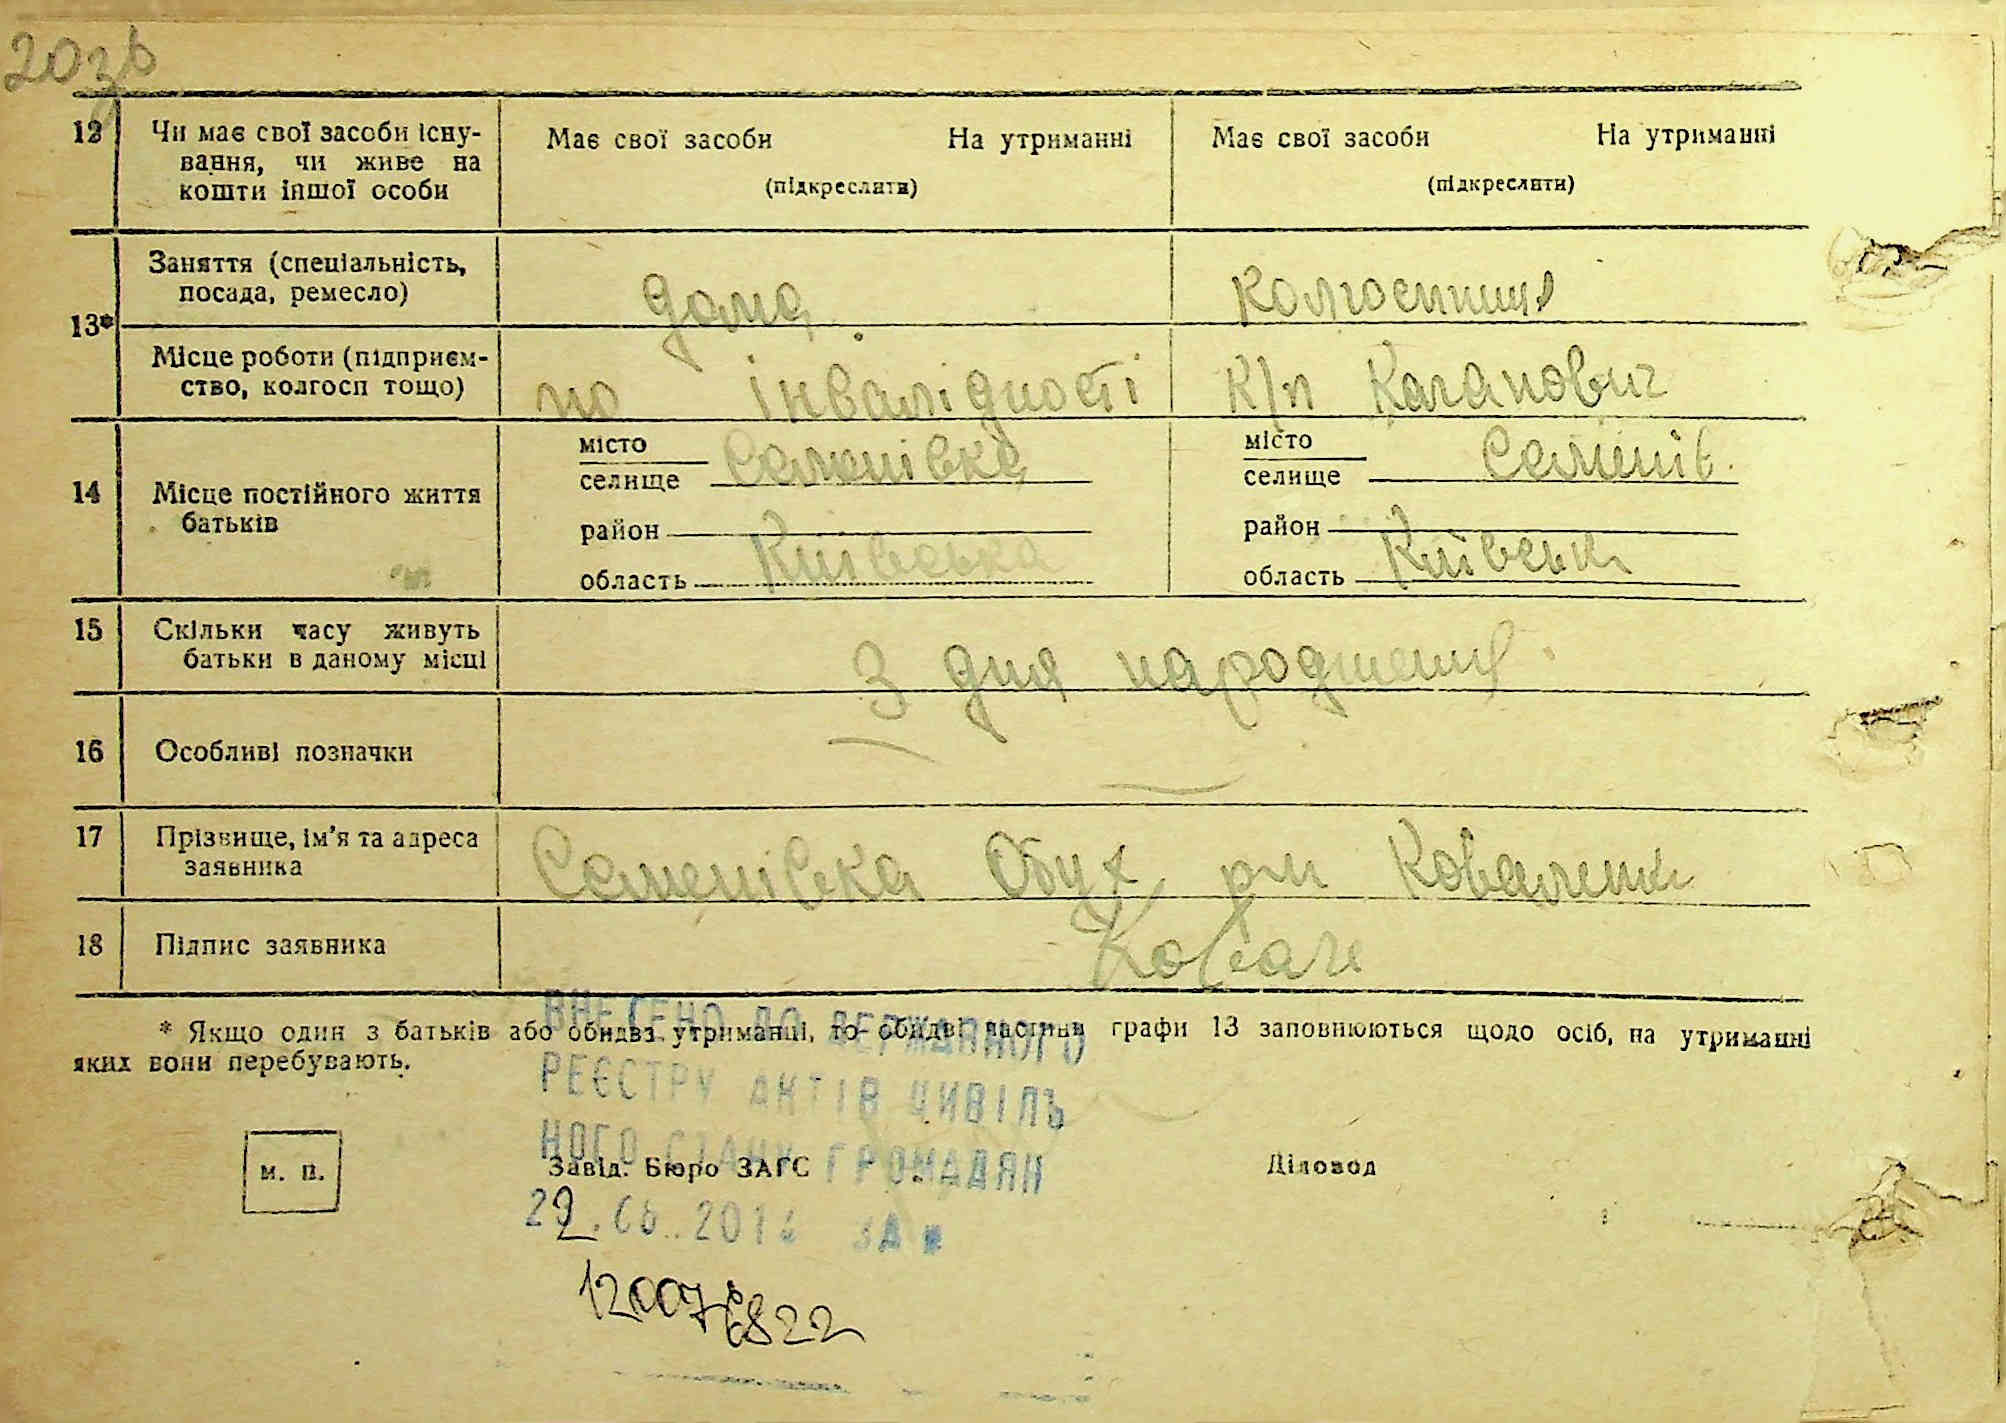 20зв
12 Чи має свої засоби існу- Має свої засоби На утриманні Має свої засоби На утриманні
вання, чи живе на (підкреслити) (підкреслити)
кошти іншої особи
13* Заняття (спеціальність, дома колгоспниця
посада, ремесло)
Місце роботи (підприєм- по інвалідності к/п Каганович
ство, колгосп тощо)
14 Місце постійного життя батьків
місто Семенівка місто Семенів.
селище селище
район район
область Київська область Київськ
15 Скільки часу живуть З дня народження.
батьки в даному місці
16 Особливі позначки
17 Прізвище, ім'я та адреса Семенівка Обух рн Коваленк
заявника
18 Підпис заявника Ковале
* Якщо один з батьків або обидва утриманні, то обидві частини графи 13 заповнюються щодо осіб, на утриманні
яких вони перебувають.
ВНЕСЕНО ДО ДЕРЖАВНОГО
РЕЄСТРУ АКТІВ ЦИВІЛЬ
НОГО СТАНУ ГРОМАДЯН
м. п. Завід. Бюро ЗАГС Діловод